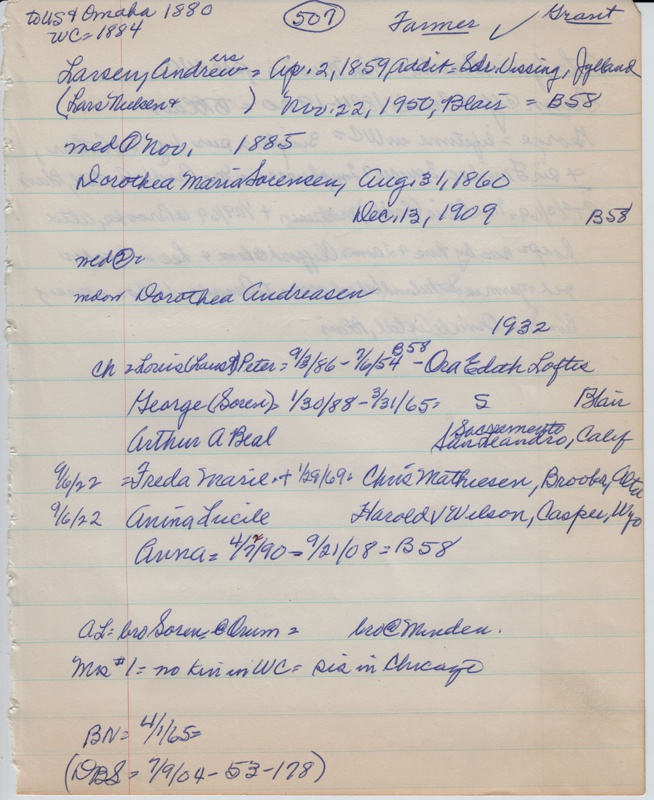 to US & Omaha 1880 (507) Farmer ✓ Grant
WC = 1884
Larsen, Andrew ers = Ap. 2, 1859, Addit = Sdr. Vissing, Jylland
(Lars Nielsen & ) Nov. 22, 1950, Blair = B58
med ① Nov. 1885
Dorothea Maria Sorensen, Aug. 31, 1860
Dec. 13, 1909 B58
med ② =
mdow Dorothea Andreasen
1932
Ch = Louis (Laust) Peter = 9/3/86 - 7/6/54 B58 - Ora Edith Loftis
George (Soren) = 1/30/88 - 3/31/65 = S Blair
Arthur A Beal Sacramento San Leandro, Calif
9/6/22 = Freda Marie + 1/29/69 = Chris Mathiesen, Brooks, Alta
9/6/22 Anina Lucile Harold V Wilson, Casper, Wyo
Anna = 4/7/90 - 9/21/08 = B58
AL = bro Soren @ Orum = bro @ Minden.
Mrs #1 = no kin in WC = sis in Chicago
BN = 4/1/65 =
(DBS = 7/9/04 - 53 - 178)